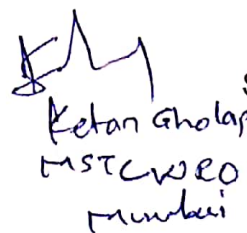 Ketan Gholap
MSTC WRO
Mumbai